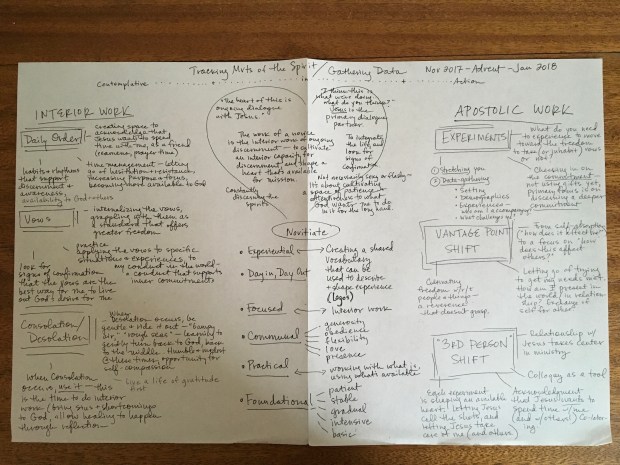 Tracking Mvts of the Spirit / Gathering Data Nov 2017 - Advent - Jan 2018
Contemplative in Action
INTERIOR WORK
Daily Order
creating space to
acknowledge that
Jesus wants to spend
time with me as a friend
(examens, prayer time)
habits + rhythms
that support
discernment +
awareness,
availability to God + others
time management - letting
go of hesitation + resistance,
increasing purpose + focus,
becoming more available to God
Vows
internalizing the vows,
grappling with them as
a standard that offers
greater freedom
practice
applying the vows to specific
situations + experiences, to
my conduct in the world -
conduct that supports
inner commitments
look for
signs of confirmation
that the vows are the
best way for me to live
out God's desire for me
Consolation/
Desolation
When
desolation occurs, be
gentle + ride it out - "bumpy
air" "rough seas" - learning to
gently turn back to God, back
to the middle. Humble + myself
@ these times, opportunity for
self-compassion
Live a life of gratitude
When Consolation
occurs, use it - this
is the time to do interior
work / bring sins + shortcomings
to God, allow healing to happen
through reflection
The heart of this is
ongoing dialogue
with Jesus.
"I think this is
what we're doing,
what do you think?"
Jesus is the
primary dialogue
partner.
The work of a novice
is the interior work of ongoing
discernment - to cultivate
an interior capacity for
discernment and shape a
heart that's available
for mission.
To integrate
the life and
look for
signs of
confirmation
Constantly
discerning the
spirits
Not necessarily easy or flashy -
It's about cultivating
space + particular
attentiveness to what
God wants me to do
in it for the long haul.
Novitiate
Experiential
Creating a shared
vocabulary
that can be
used to describe
+ shape experience
(logos)
Day in, Day Out
Focused
Interior work
Communal
generosity
obedience
flexibility
love
presence
Practical
working with what is,
using what's available
Foundational
patient
stable
gradual
intensive
basic
APOSTOLIC WORK
EXPERIMENTS
What do you need
to experience to move
toward the freedom
to say yes (or whatever) vows
or not?
① Stretching you
② Data-gathering
• Setting
• Demographics
• Experiences -
who am I accompanying?
what challenges me?
Choosing in
the commitment -
not using gifts yet,
primary focus is on
discerning a deeper
commitment
VANTAGE POINT
SHIFT
From self-absorption
"how does it affect me?"
to a focus on "how
does this affect
others?"
Cultivating
freedom w/r/t
people + things -
a reverence
that doesn't grasp.
Letting go of trying
to get my needs met.
How am I present in
the world, in relation-
ship? Emptying of
self for other
"3RD PERSON"
SHIFT
Relationship w/
Jesus takes center
in ministry
Colloquy as a tool
Each experiment
is shaping an available
heart; letting Jesus
call the shots, and
letting Jesus take
care of me (and others)
Acknowledgment
that Jesus wants to
spend time w/ me
(and others!) Co-labor-
ing